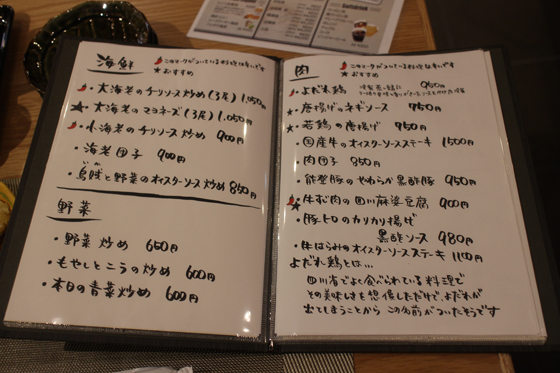 海鮮
このマークが入っている料理は辛いです
★おすすめ
・大海老のチリソース炒め(3尾) 1,050円
★大海老のマヨネーズ(3尾) 1,050円
・小海老のチリソース炒め 900円
・海老団子 900円
いか
・烏賊と野菜のオイスターソース炒め 850円
野菜
・野菜炒め 650円
・もやしとニラの炒め 600円
・本日の青菜炒め 600円
肉
このマークが入っている料理は辛いです
★おすすめ
・よだれ鶏 950円
・唐揚げのネギソース 950円
★若鶏の唐揚げ 950円
・国産牛のオイスターソースステーキ 1500円
・肉団子 950円
・能登豚のやわらか黒酢豚 950円
★牛すじ肉の四川麻婆豆腐 900円
・豚トロのカリカリ揚げ
黒酢ソース 980円
・牛はらみのオイスターソースステーキ 1100円
よだれ鶏とは...
四川省でよく食べられている料理で
その美味しさを想像しただけで、よだれが
出てしまうことから この名前がついたそうです